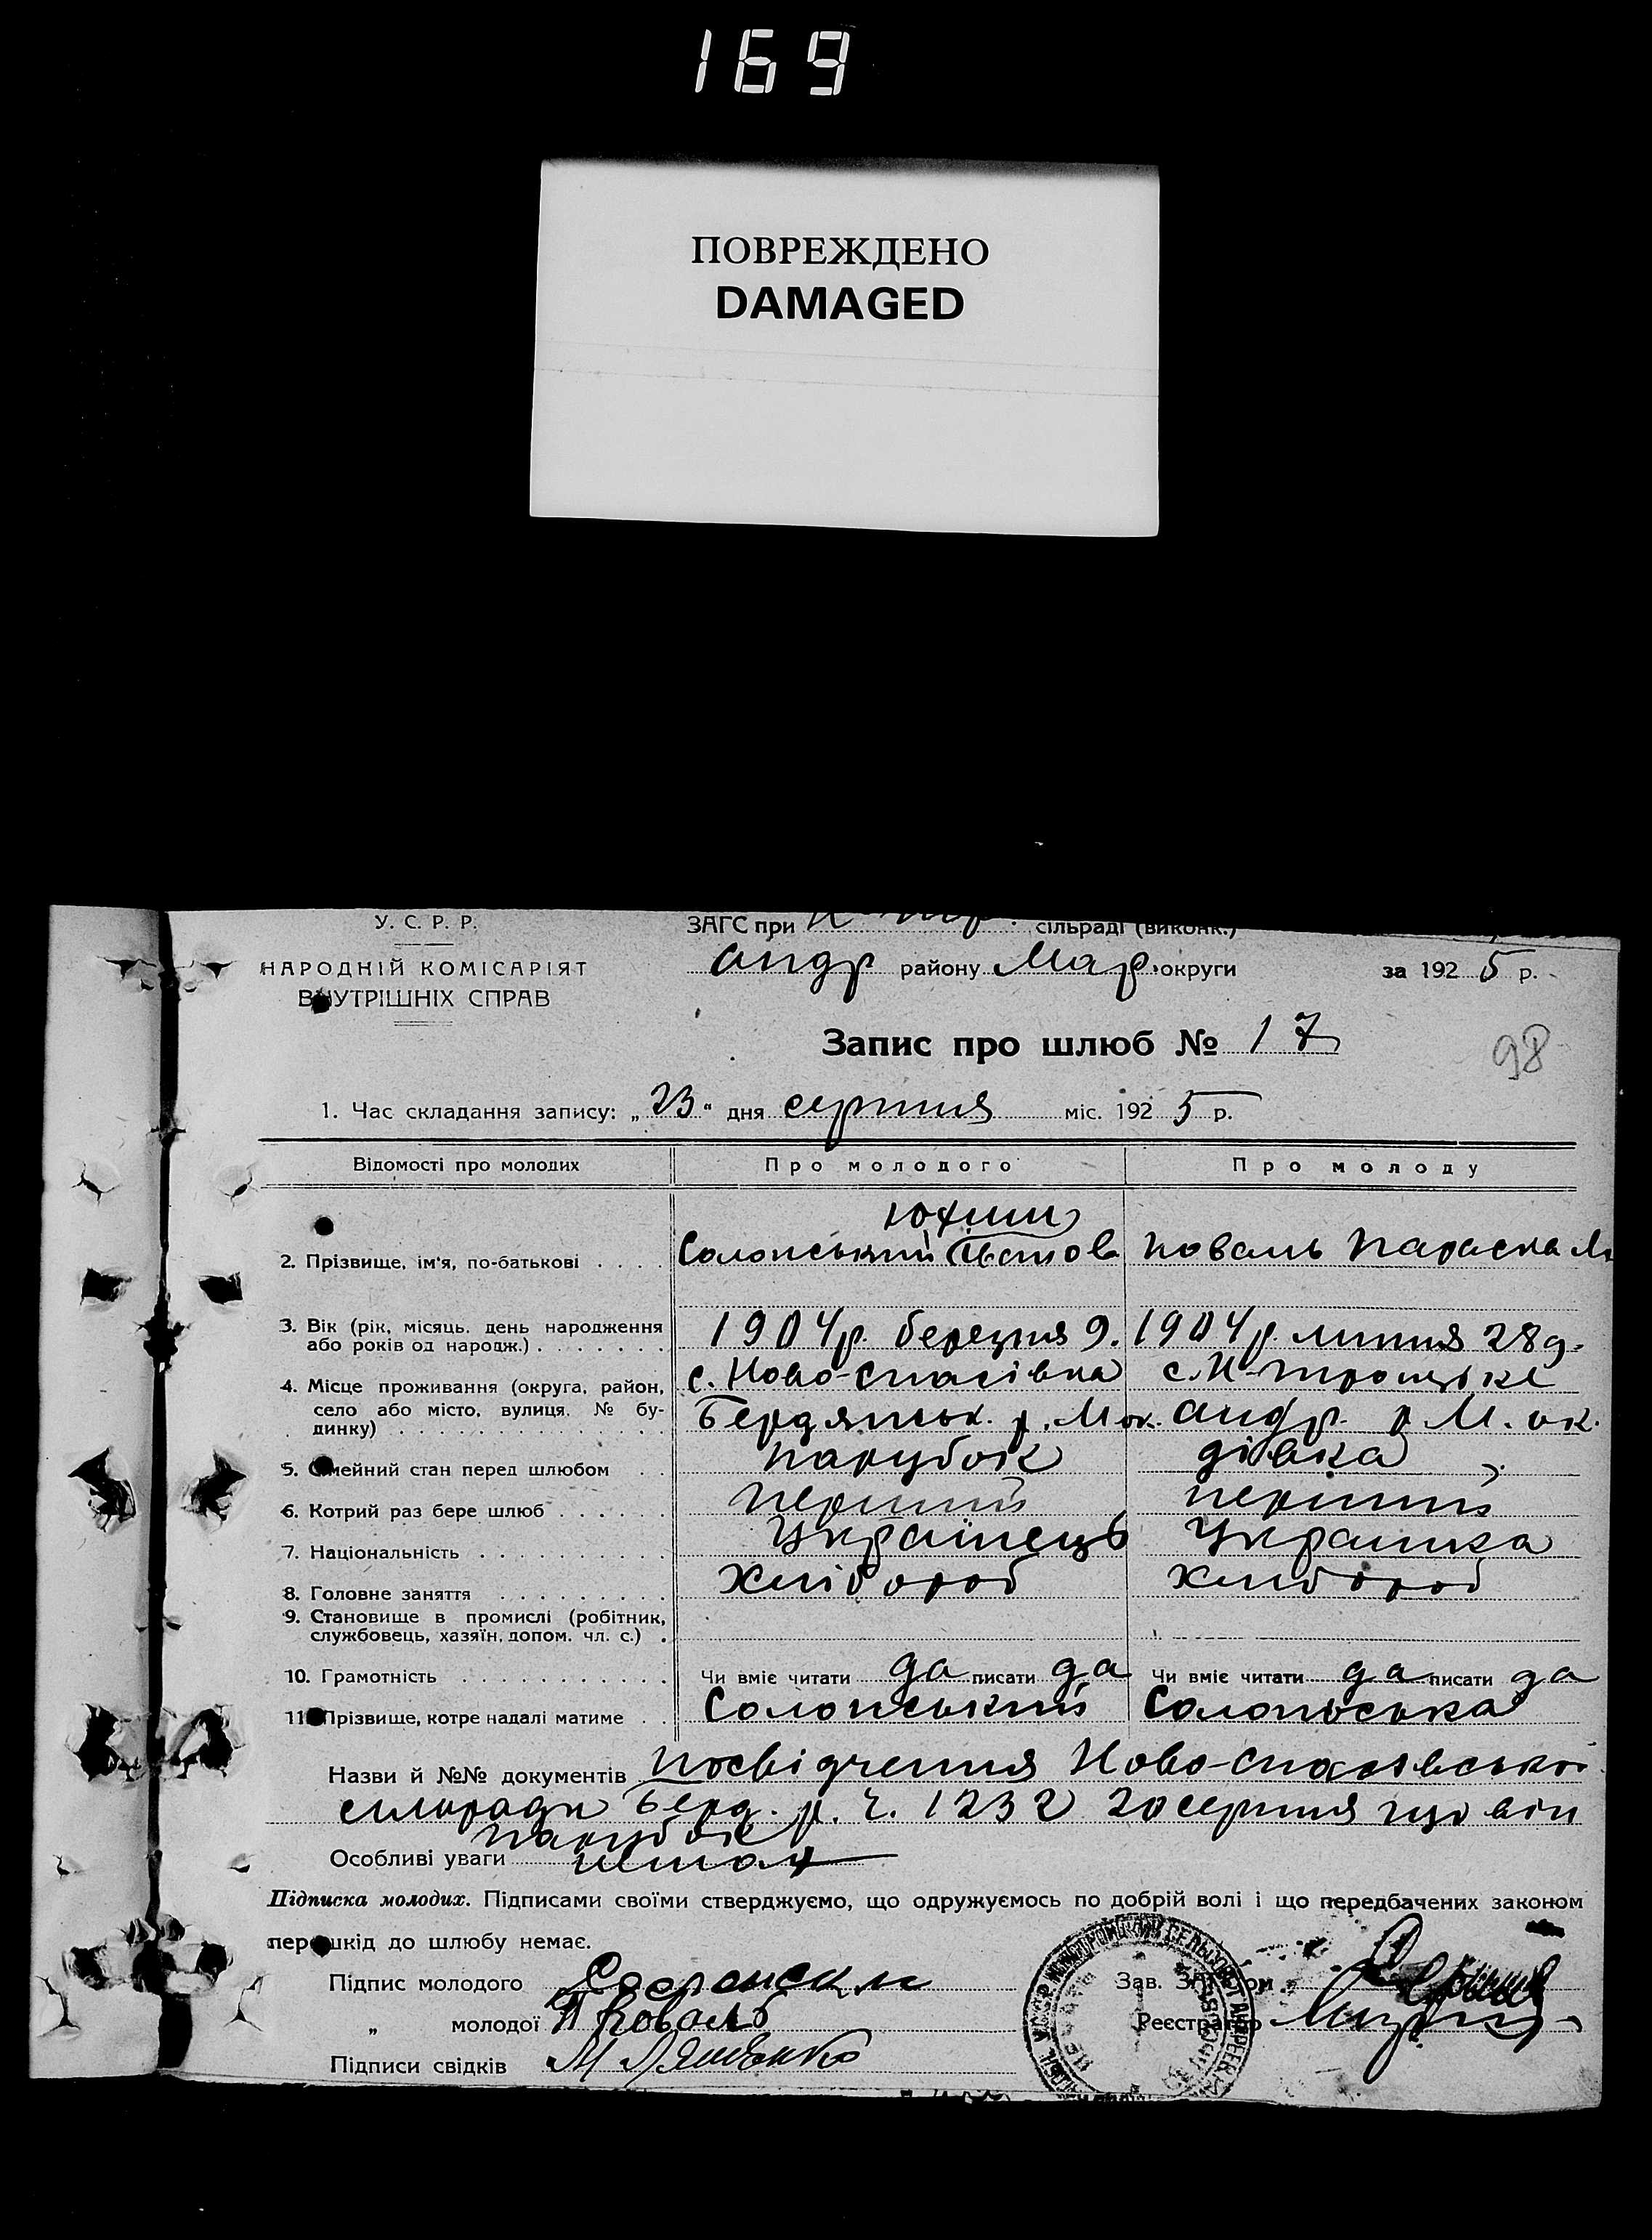 169
ПОВРЕЖДЕНО
DAMAGED
У. С. Р. Р.
НАРОДНІЙ КОМІСАРІЯТ
ВНУТРІШНІХ СПРАВ
ЗАГС при сільраді (виконк.)
Андр району Мар. округи за 1925 р.
Запис про шлюб № 17
98
1. Час складання запису: „23" дня серпня міс. 1925 р.
Відомості про молодих Про молодого Про молоду
Юхим
2. Прізвище, ім'я, по-батькові . . . . Солонський Іванов Коваль Параска М
3. Вік (рік, місяць, день народження
або років од народж.) . . . . . . . 1904 р. березня 9. 1904 р. липня 28 д.
4. Місце проживання (округа, район, с. Ново-Спасівка с. Н-Троицьке
село або місто, вулиця, № бу-
динку) . . . . . . . . . . . . . . Бердянськ. р. М ок. Андр. р М. ок.
5. Сімейний стан перед шлюбом . . парубок дівка
6. Котрий раз бере шлюб . . . . . . перший перший
7. Національність . . . . . . . . . . Українець Українка
8. Головне заняття . . . . . . . . . Хлібороб Хлібороб
9. Становище в промислі (робітник,
службовець, хазяїн, допом. чл. с.) .
10. Грамотність . . . . . . . . . . . Чи вміє читати да писати да Чи вміє читати да писати да
11. Прізвище, котре надалі матиме . . Солонський Солонська
Назви й №№ документів посвідчення Ново-Спасівської
сільради Берд. р. ч. 1232 20 серпня що він
парубок
Особливі уваги
Підписка молодих. Підписами своїми стверджуємо, що одружуємось по добрій волі і що передбачених законом
перешкід до шлюбу немає.
Підпис молодого Зав. ЗАГСом
„ молодої П Коваль Реєстратор
Підписи свідків М Ляшенко